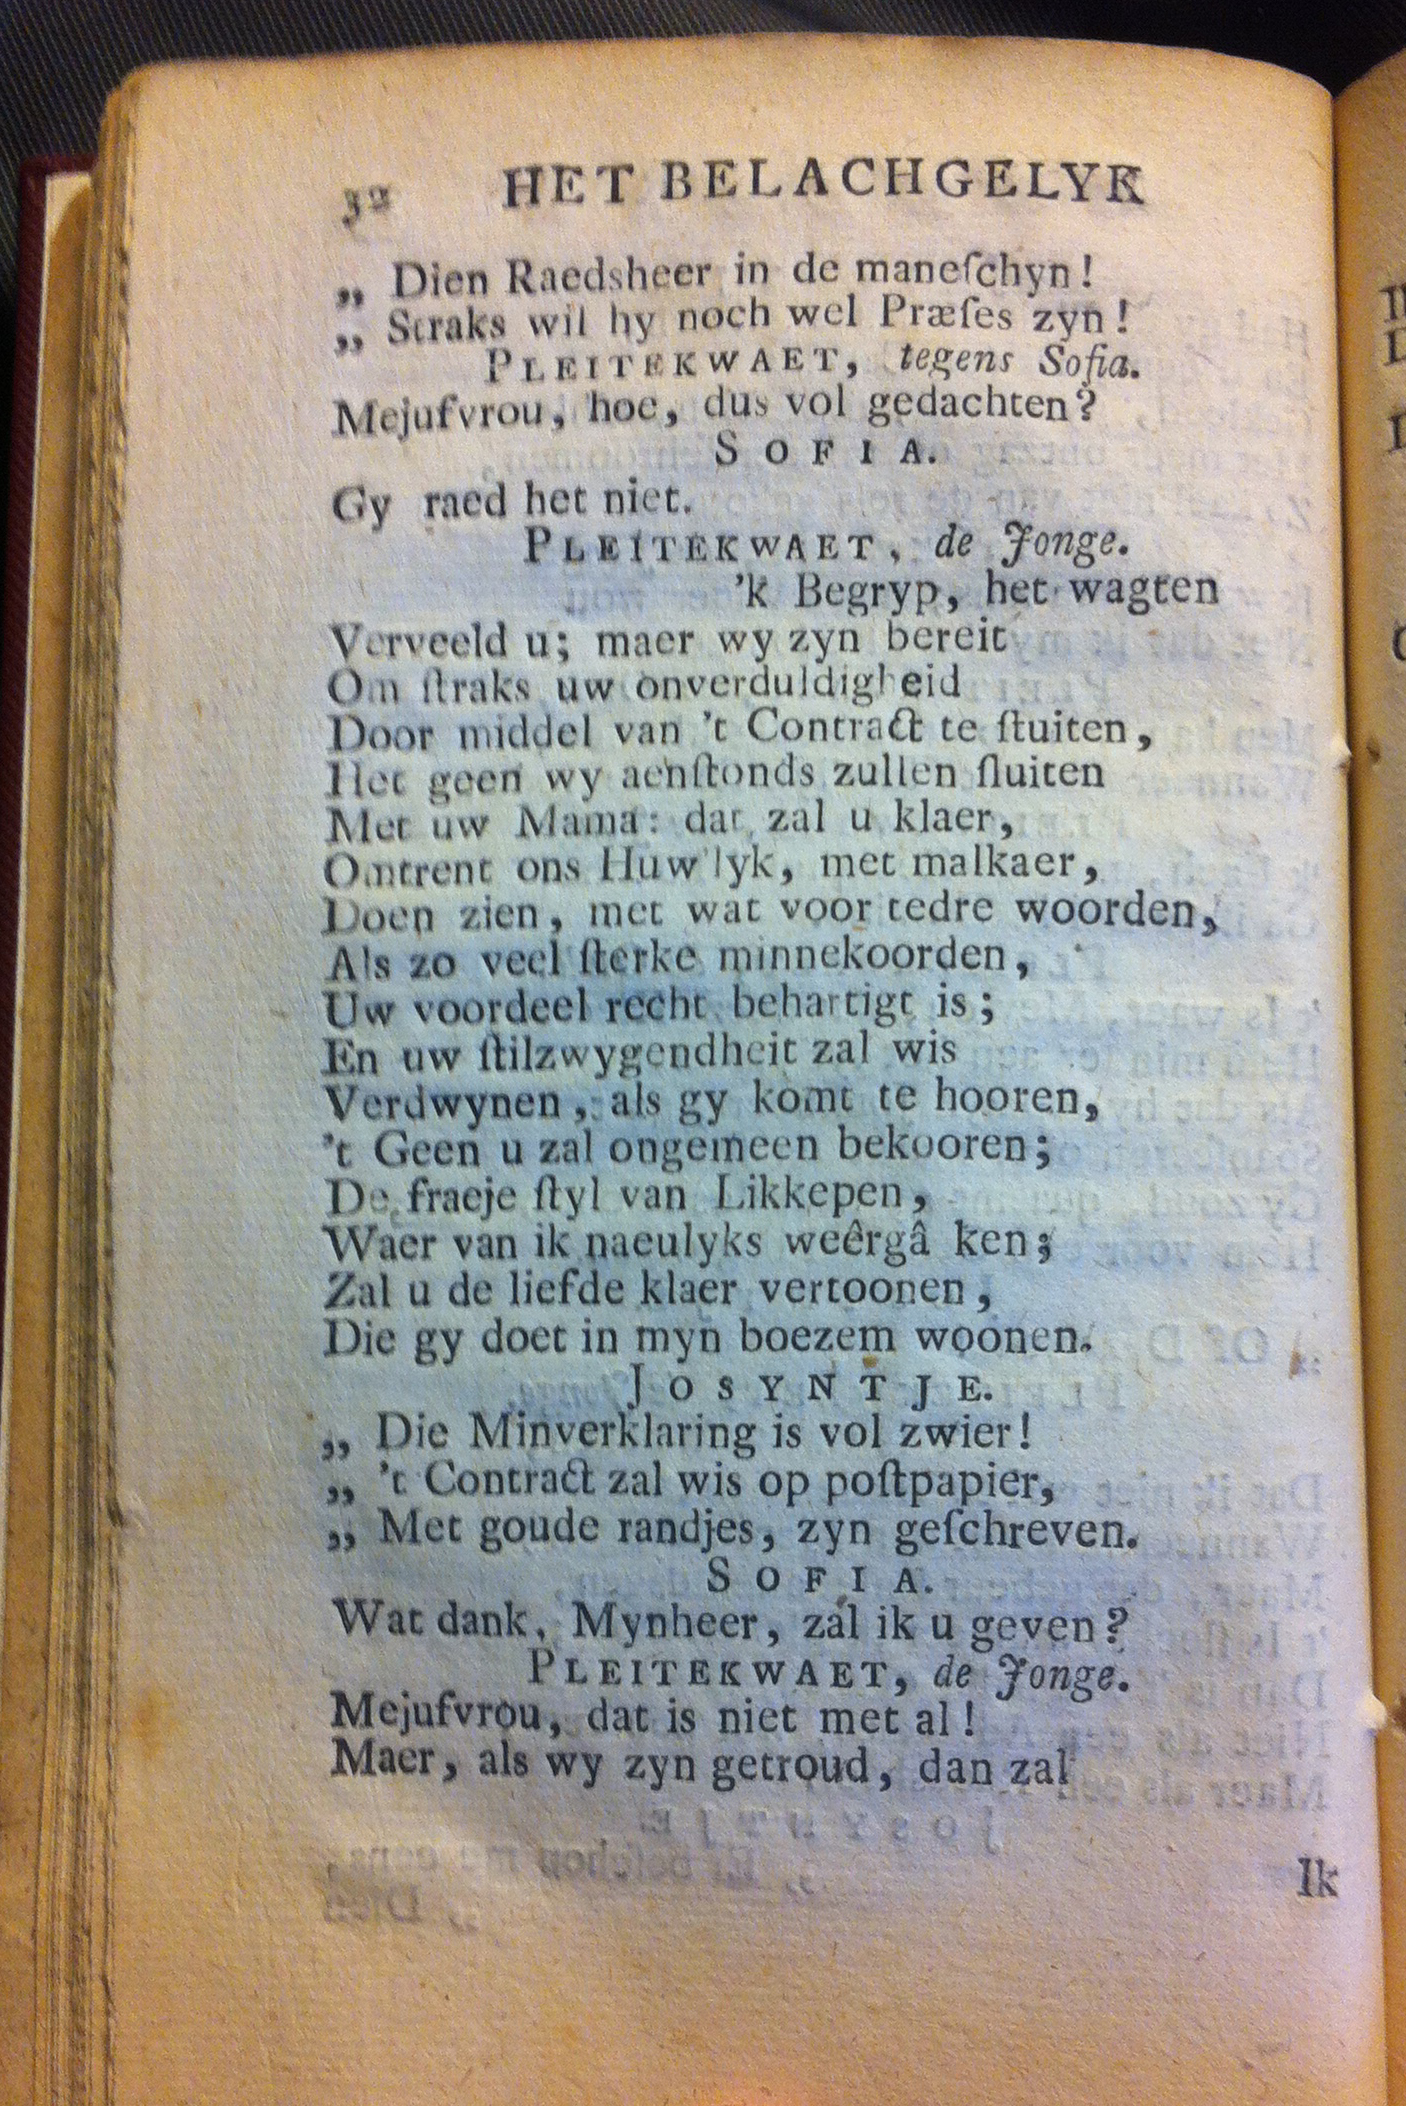 32 HET BELACHGELYK
„ Dien Raedsheer in de maneſchyn!
„ Straks wil hy noch wel Præſes zyn!
PLEITEKWAET, tegens Sofia.
Mejufvrou, hoe, dus vol gedachten?
SOFIA.
Gy raed het niet.
PLEITEKWAET, de Jonge.
'k Begryp, het wagten
Verveeld u; maer wy zyn bereit
Om ſtraks uw onverduldigheid
Door middel van 't Contract te ſtuiten,
Het geen wy aenſtonds zullen ſluiten
Met uw Mama: dat zal u klaer,
Omtrent ons Huw'lyk, met malkaer,
Doen zien, met wat voor tedre woorden,
Als zo veel ſterke minnekoorden,
Uw voordeel recht behartigt is;
En uw ſtilzwygendheit zal wis
Verdwynen, als gy komt te hooren,
't Geen u zal ongemeen bekooren;
De fraeje ſtyl van Likkepen,
Waer van ik naeulyks weêrgâ ken;
Zal u de liefde klaer vertoonen,
Die gy doet in myn boezem woonen.
JOSYNTJE.
„ Die Minverklaring is vol zwier!
„ 't Contract zal wis op poſtpapier,
„ Met goude randjes, zyn geſchreven.
SOFIA.
Wat dank, Mynheer, zal ik u geven?
PLEITEKWAET, de Jonge.
Mejufvrou, dat is niet met al!
Maer, als wy zyn getroud, dan zal
Ik